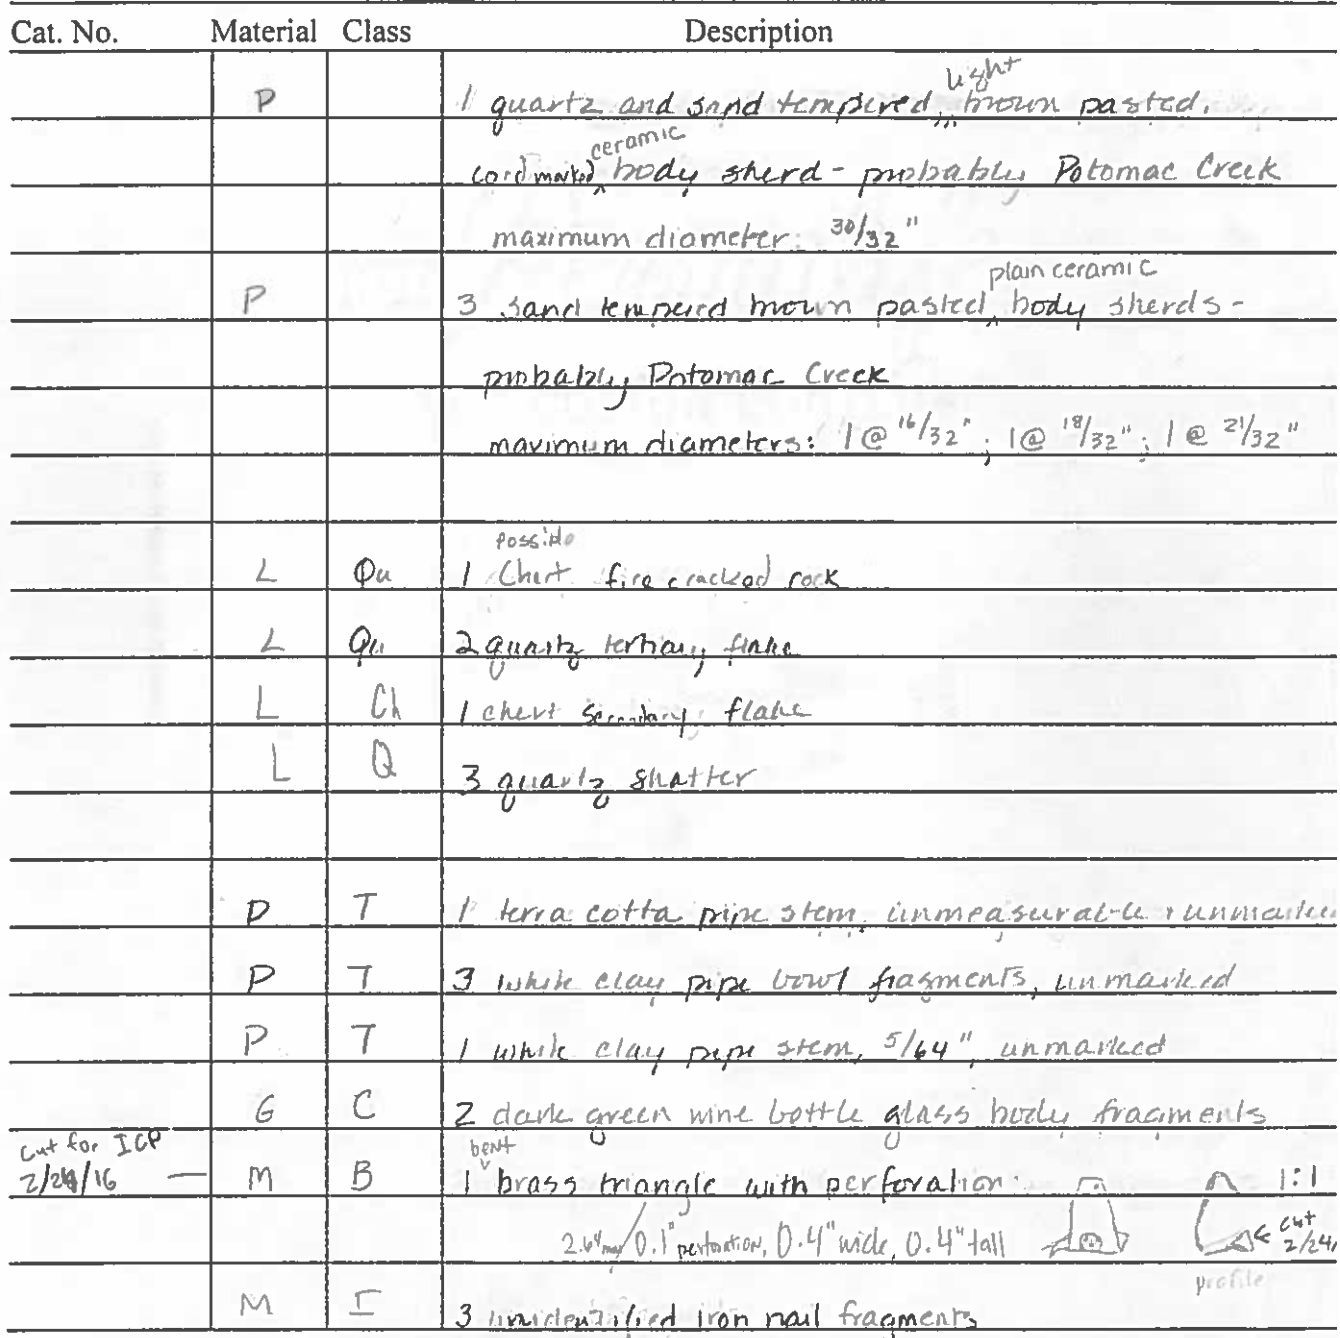 Cat. No. Material Class Description
P 1 quartz and sand tempered, light brown pasted,
cord marked ceramic body sherd - probably Potomac Creek
maximum diameter: 30/32"
P 3 sand tempered brown pasted plain ceramic body sherds -
probably Potomac Creek
maximum diameters: 1 @ 16/32"; 1 @ 18/32"; 1 @ 21/32"
L Qu 1 possible Chert fire cracked rock
L Qu 2 quartz tertiary flake
L Ch 1 chert secondary flake
L Q 3 quartz shatter
P T 1 terra cotta pipe stem, unmeasurable + unmarked
P T 3 white clay pipe bowl fragments, unmarked
P T 1 white clay pipe stem, 5/64", unmarked
G C 2 dark green wine bottle glass body fragments
Cut for ICP
2/24/16 — M B 1 bent brass triangle with perforation 1:1
0.1" perforation, 0.4" wide, 0.4" tall < cut 2/24/
profile
M I 3 unidentified iron nail fragments